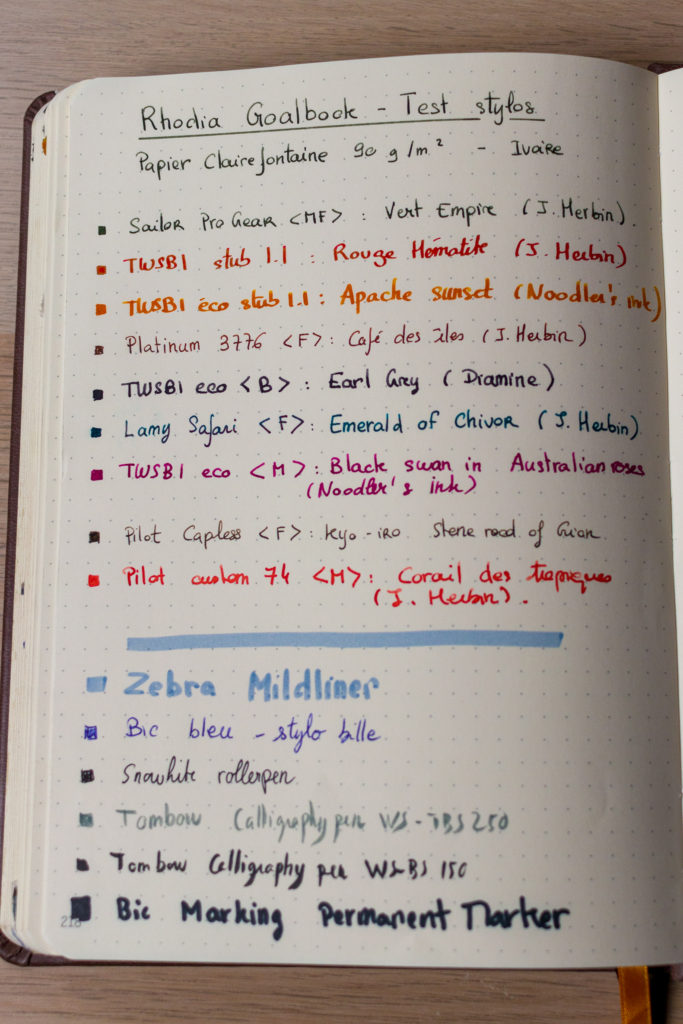 Rhodia Goalbook - Test stylos
Papier Clairefontaine 90 g/m² - Ivoire
Sailor Pro Gear <MF> : Vert Empire (J. Herbin).
TWSBI stub 1.1 : Rouge Hématite (J. Herbin)
TWSBI éco stub 1.1 : Apache sunset (Noodler's ink)
Platinum 3776 <F> : Café des îles (J. Herbin)
TWSBI eco <B> : Earl Grey (Diamine)
Lamy Safari <F> : Emerald of Chivor (J. Herbin)
TWSBI eco <M> : Black swan in Australian roses
(Noodler's ink)
Pilot Capless <F> : Kyo-iro Stone road of Gion
Pilot custom 74 <M> : Corail des tropiques
(J. Herbin).
Zebra Mildliner
Bic bleu - stylo bille
Snowhite rollerpen
Tombow Calligraphy pen WS-TBS 250
Tombow Calligraphy pen WS-BS 150
Bic Marking Permanent Marker